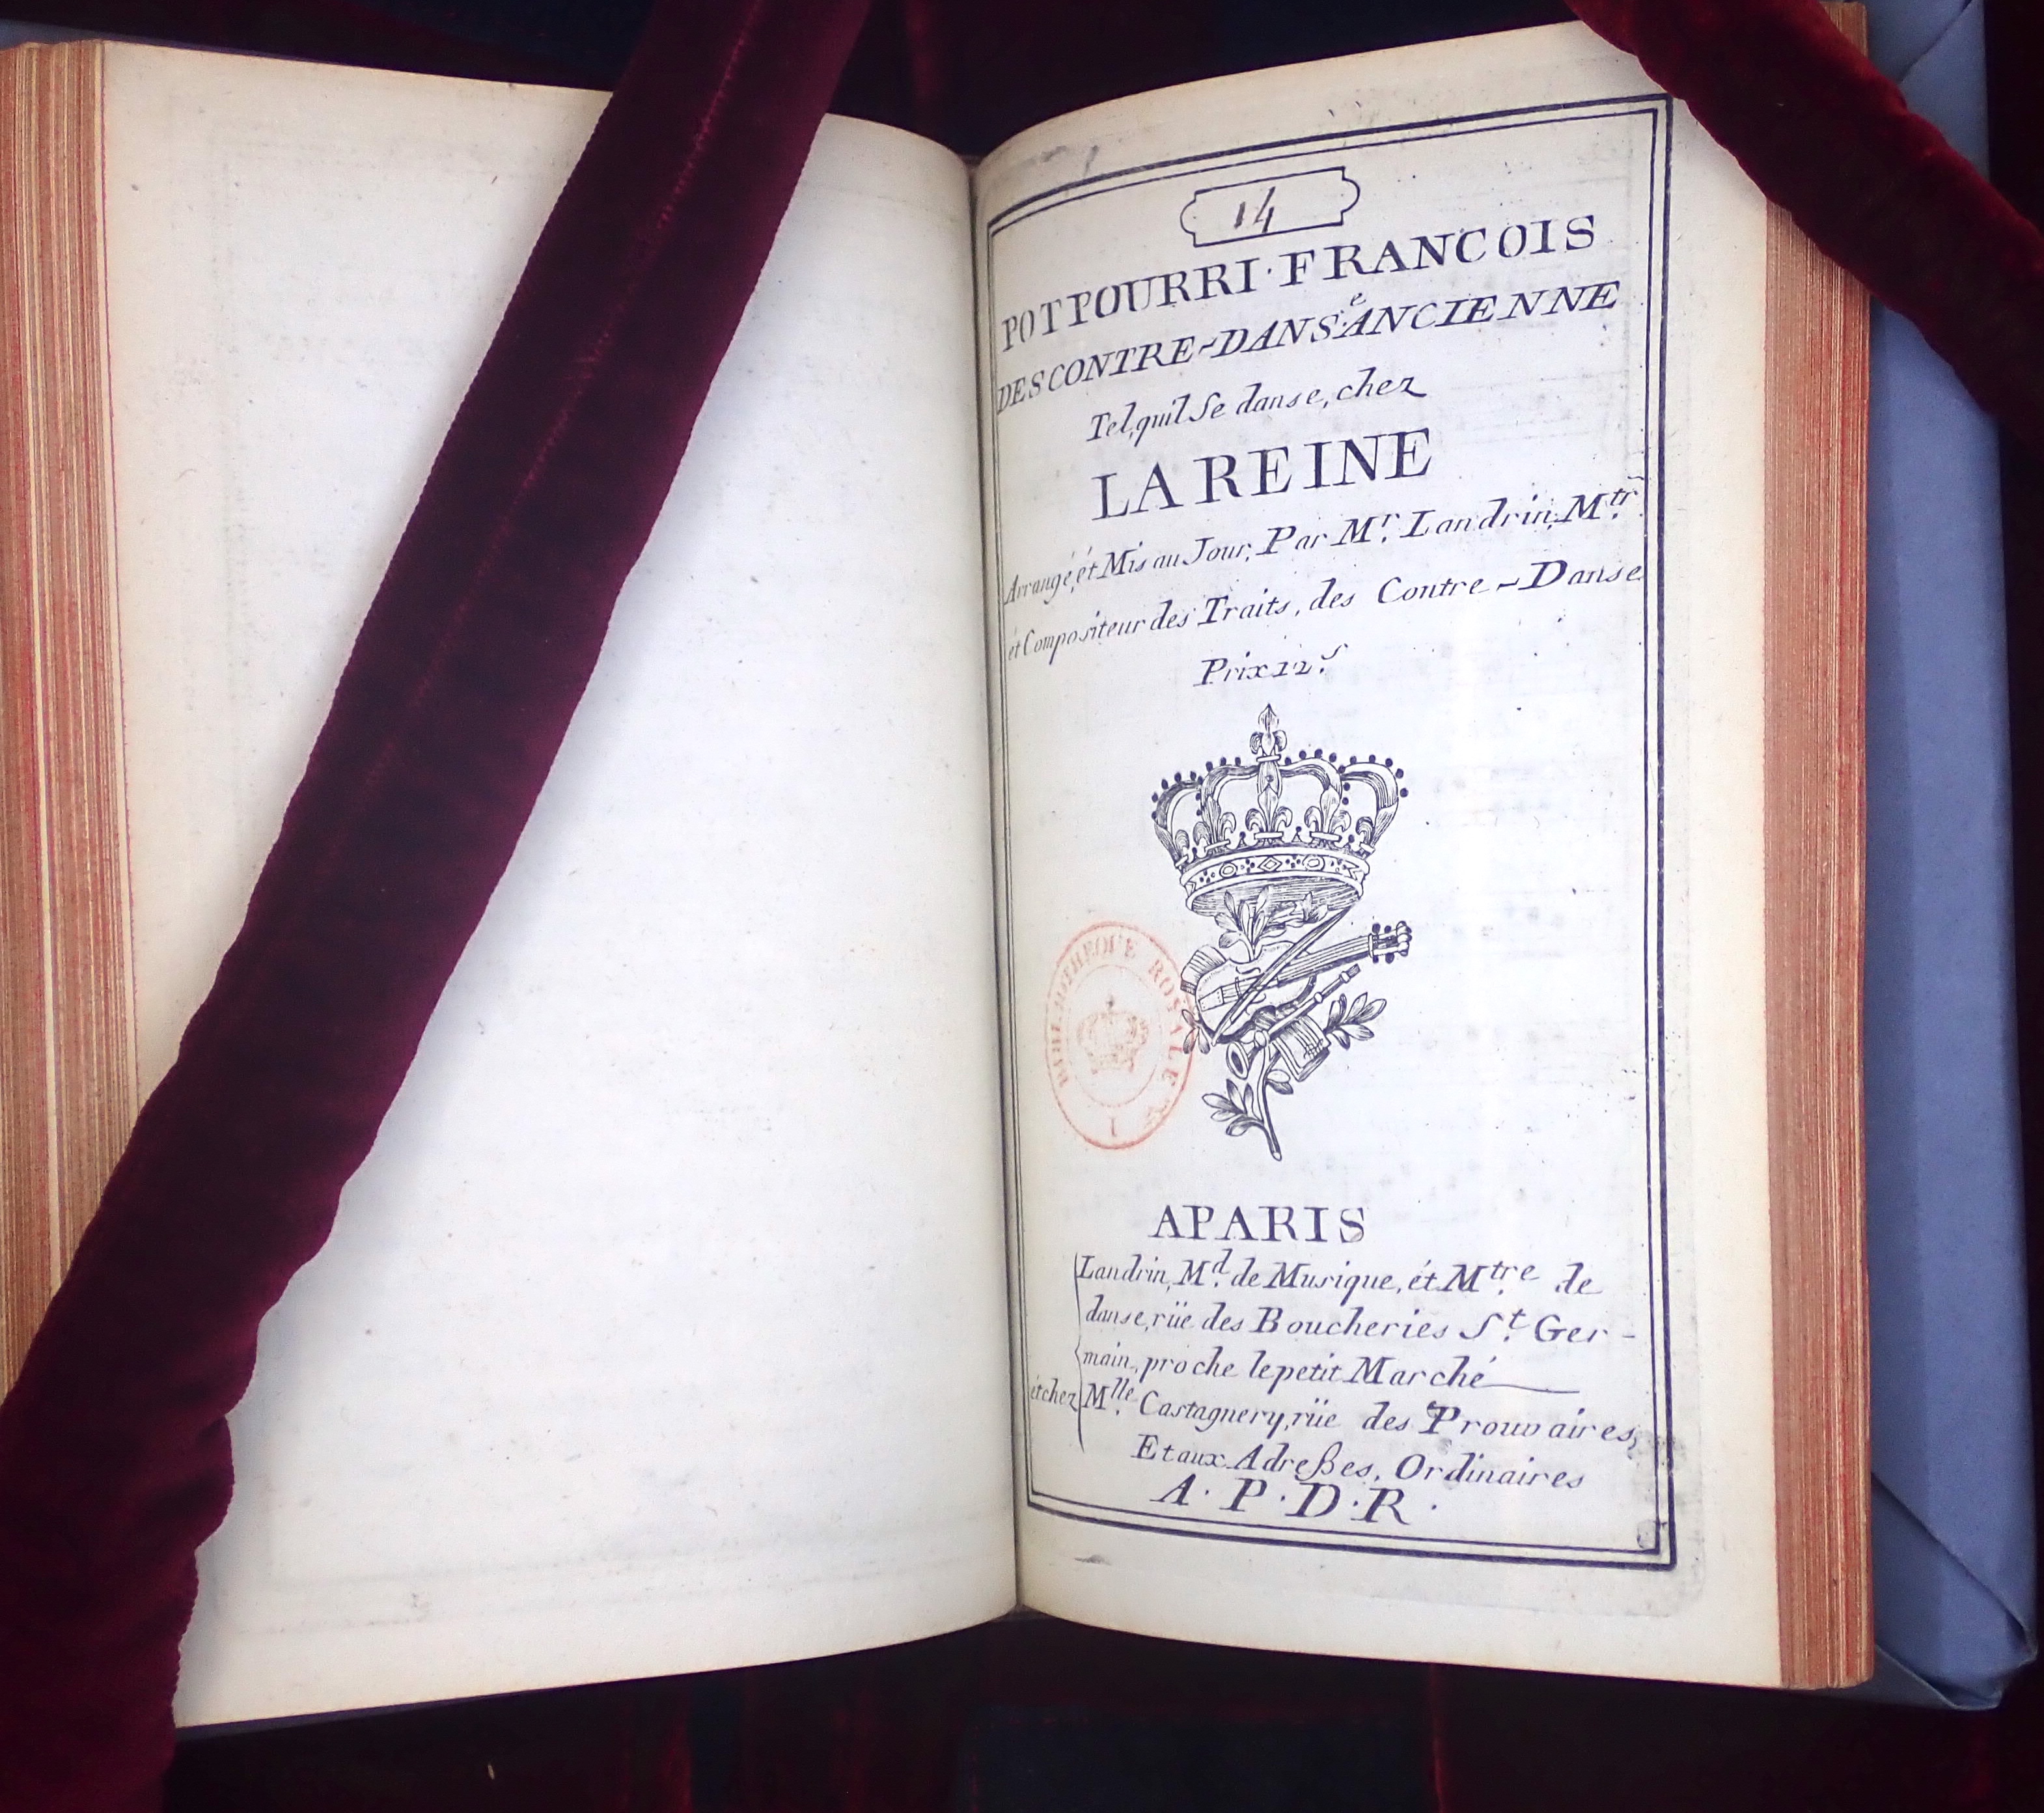 14
POTPOURRI·FRANCOIS
DES CONTRE-DANS.e ANCIENNE
Tel, quil Se danse, chez
LA REINE
Arrangé, ét Mis au Jour, Par Mr. Landrin, Mtr.
ét Compositeur des Traits, des Contre-Danse
Prix 12.s
BIBLIOTHEQUE ROYALE
I
A PARIS
Landrin, Md. de Musique, ét Mtre. de
danse, rüe des Boucheries St. Ger-
main, proche le petit Marché
ét chez Mlle. Castagnery, rüe des Prouvaires,
Et aux Adreßes, Ordinaires
A·P·D·R·